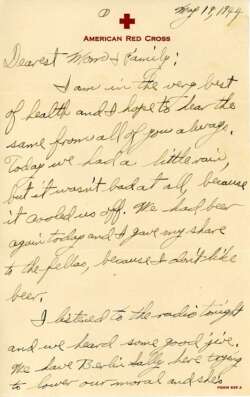 May 19, 1944
AMERICAN RED CROSS
Dearest Mom & Family:
I am in the very best
of health and I hope to hear the
same from all of you always.
Today we had a little rain,
but it wasn't bad at all, because
it cooled us off. We had beer
again today and I gave my share
to the fellas, because I don't like
beer.
I listened to the radio tonight
and we heard some good jive.
We have Berlin Sally here trying
to lower our moral and she's
FORM 539 A